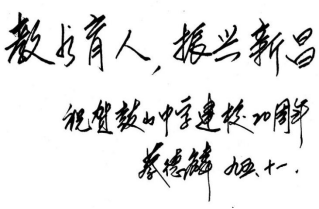 教书育人，振兴新昌
祝贺鼓山中学建校20周年
蔡德麟 九五.十一.